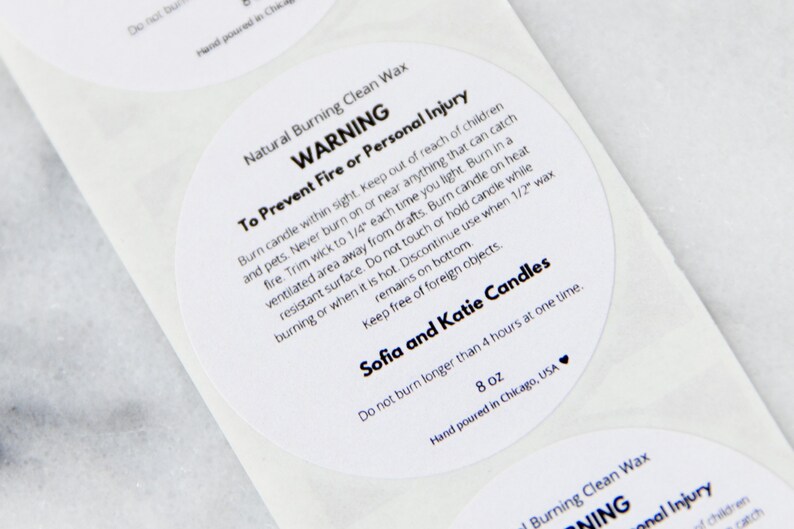 Do not burn
Hand poured in Chicago,
Natural Burning Clean Wax
WARNING
To Prevent Fire or Personal Injury
Burn candle within sight. Keep out of reach of children
and pets. Never burn on or near anything that can catch
fire. Trim wick to 1/4" each time you light. Burn in a
ventilated area away from drafts. Burn candle on heat
resistant surface. Do not touch or hold candle while
burning or when it is hot. Discontinue use when 1/2" wax
remains on bottom.
Keep free of foreign objects.
Sofia and Katie Candles
Do not burn longer than 4 hours at one time.
8 oz
Hand poured in Chicago, USA ♥
Burning Clean Wax
Personal Injury
of children
catch